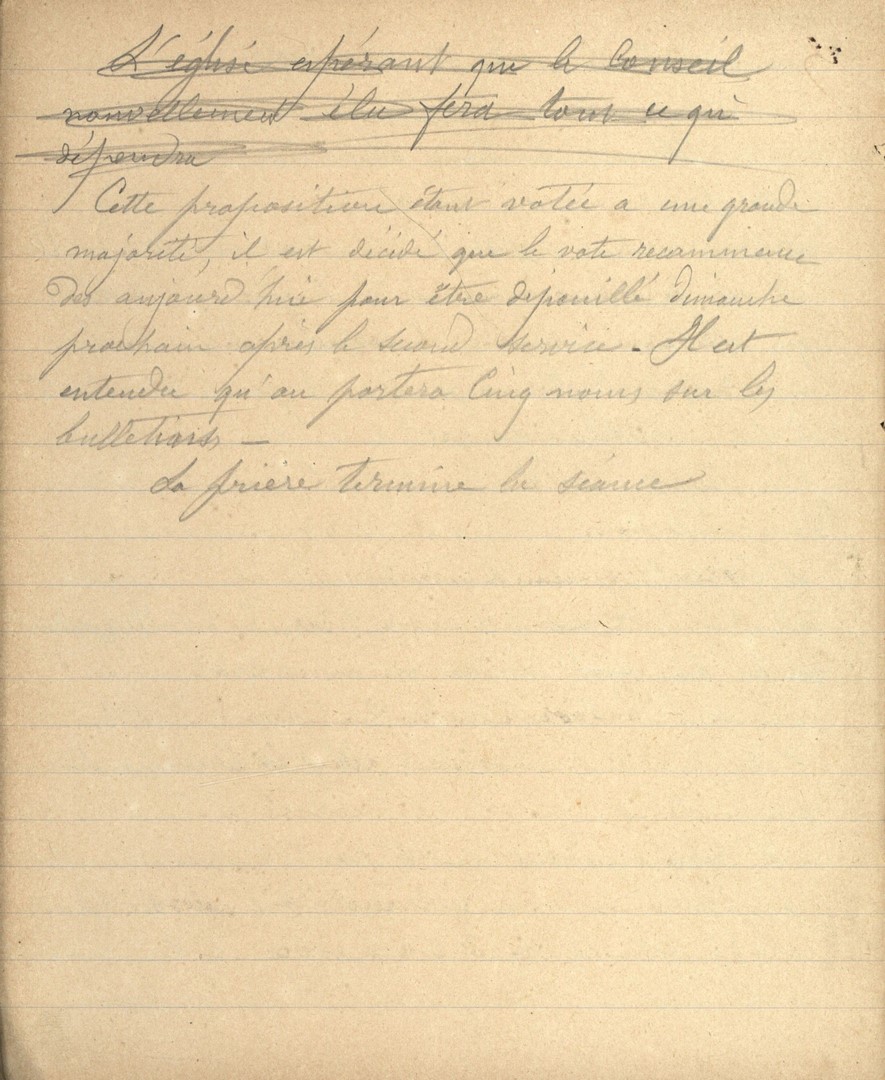 L'église espérant que le Conseil
nouvellement élu fera tout ce qui
dépendra
Cette proposition étant votée a une grande
majorité, il est décidé que le vote recommence
des aujourd'hui pour être dépouillé dimanche
prochain après le second service. Il est
entendu qu'on portera Cinq noms sur les
bulletins —
La prière termine la séance